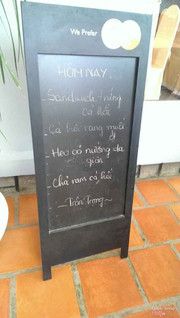 We Prefer
HÔM NAY:
Sandwich trứng
cá hồi
- Cá hồi rang muối
- Heo cỏ nướng da
giòn
- Chả ram cá hồi
~ Trân trọng ~